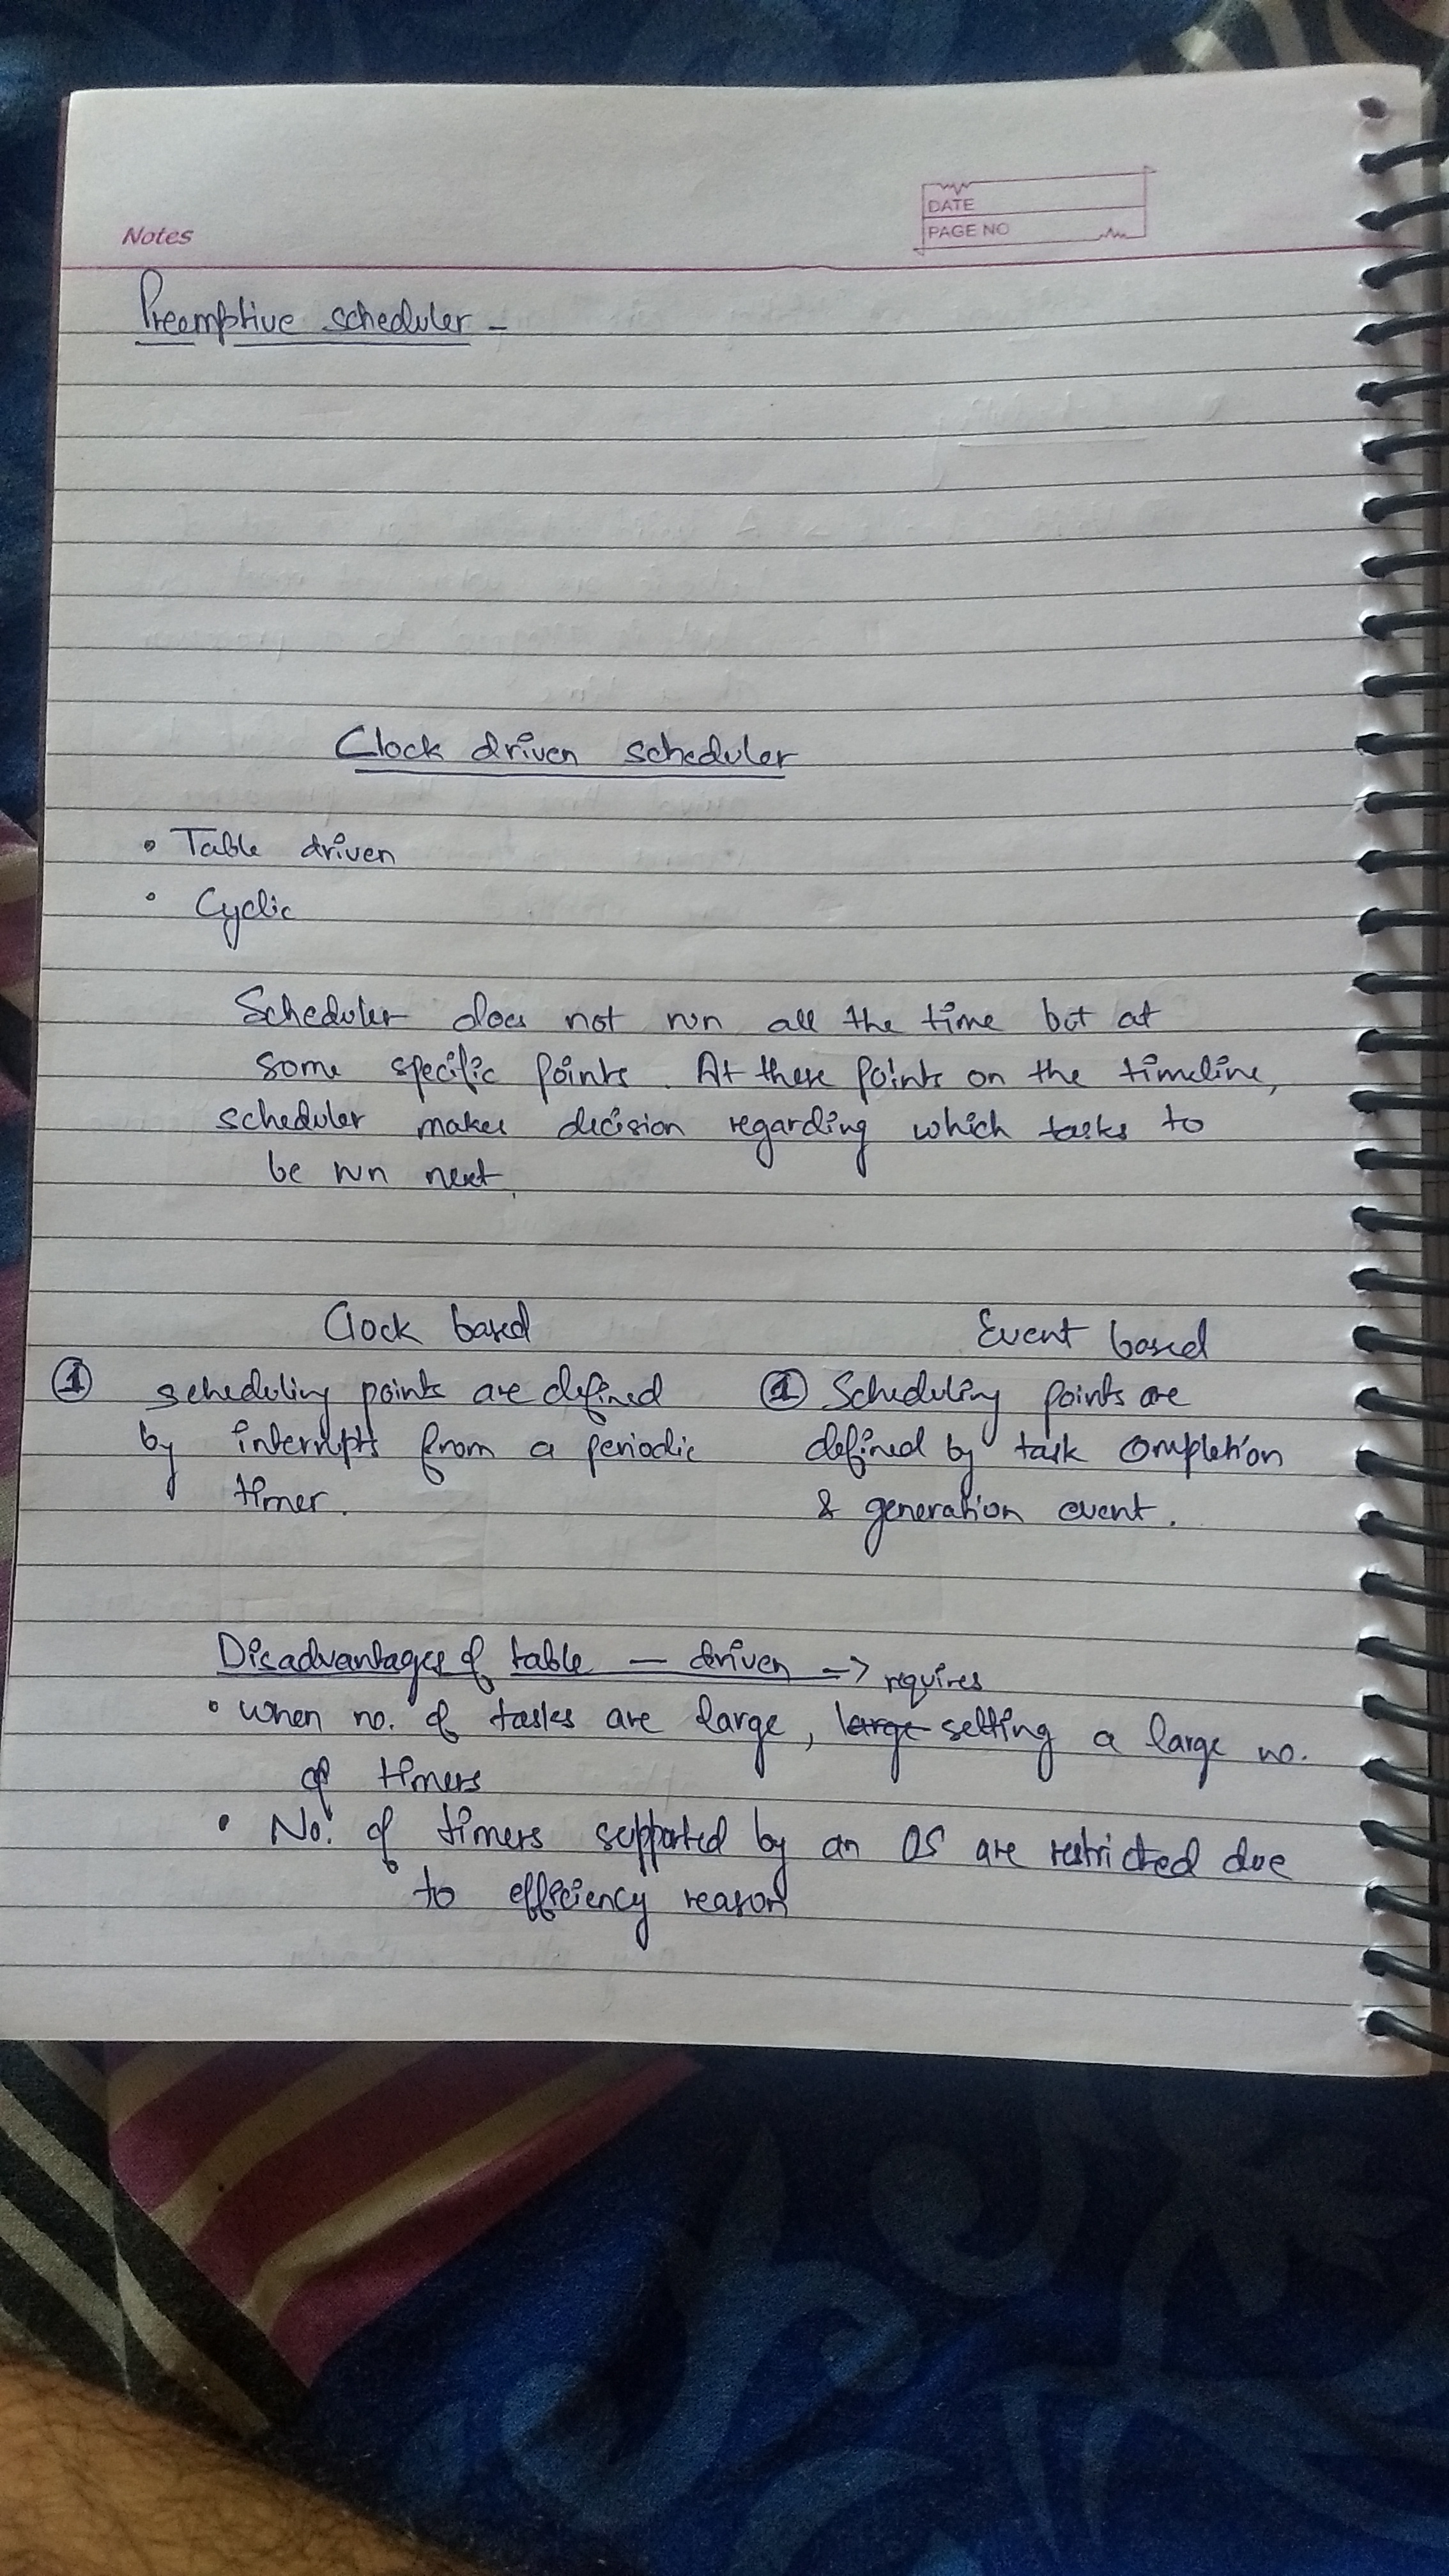 DATE
PAGE NO
Notes
Preemptive scheduler -
Clock driven scheduler
• Table driven
• Cyclic
Scheduler does not run all the time but at
some specific points. At these points on the timeline,
scheduler makes decision regarding which tasks to
be run next.
Clock based
Event based
① scheduling points are defined
by interrupts from a periodic
timer.
① Scheduling points are
defined by task completion
& generation event.
Disadvantages of table - driven => requires
• when no. of tasks are large, large setting a large no.
of timers
• No. of timers supported by an OS are restricted due
to efficiency reason